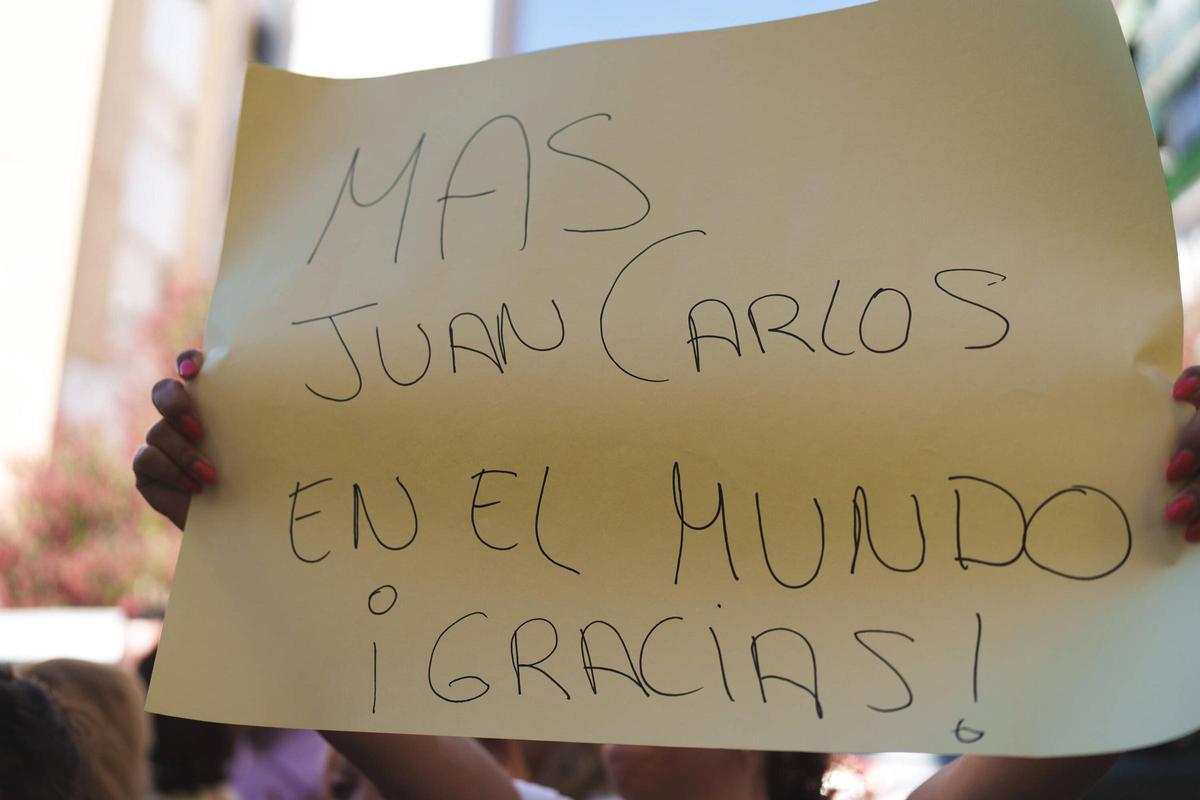 MAS
JUAN CARLOS
EN EL MUNDO
¡GRACIAS!